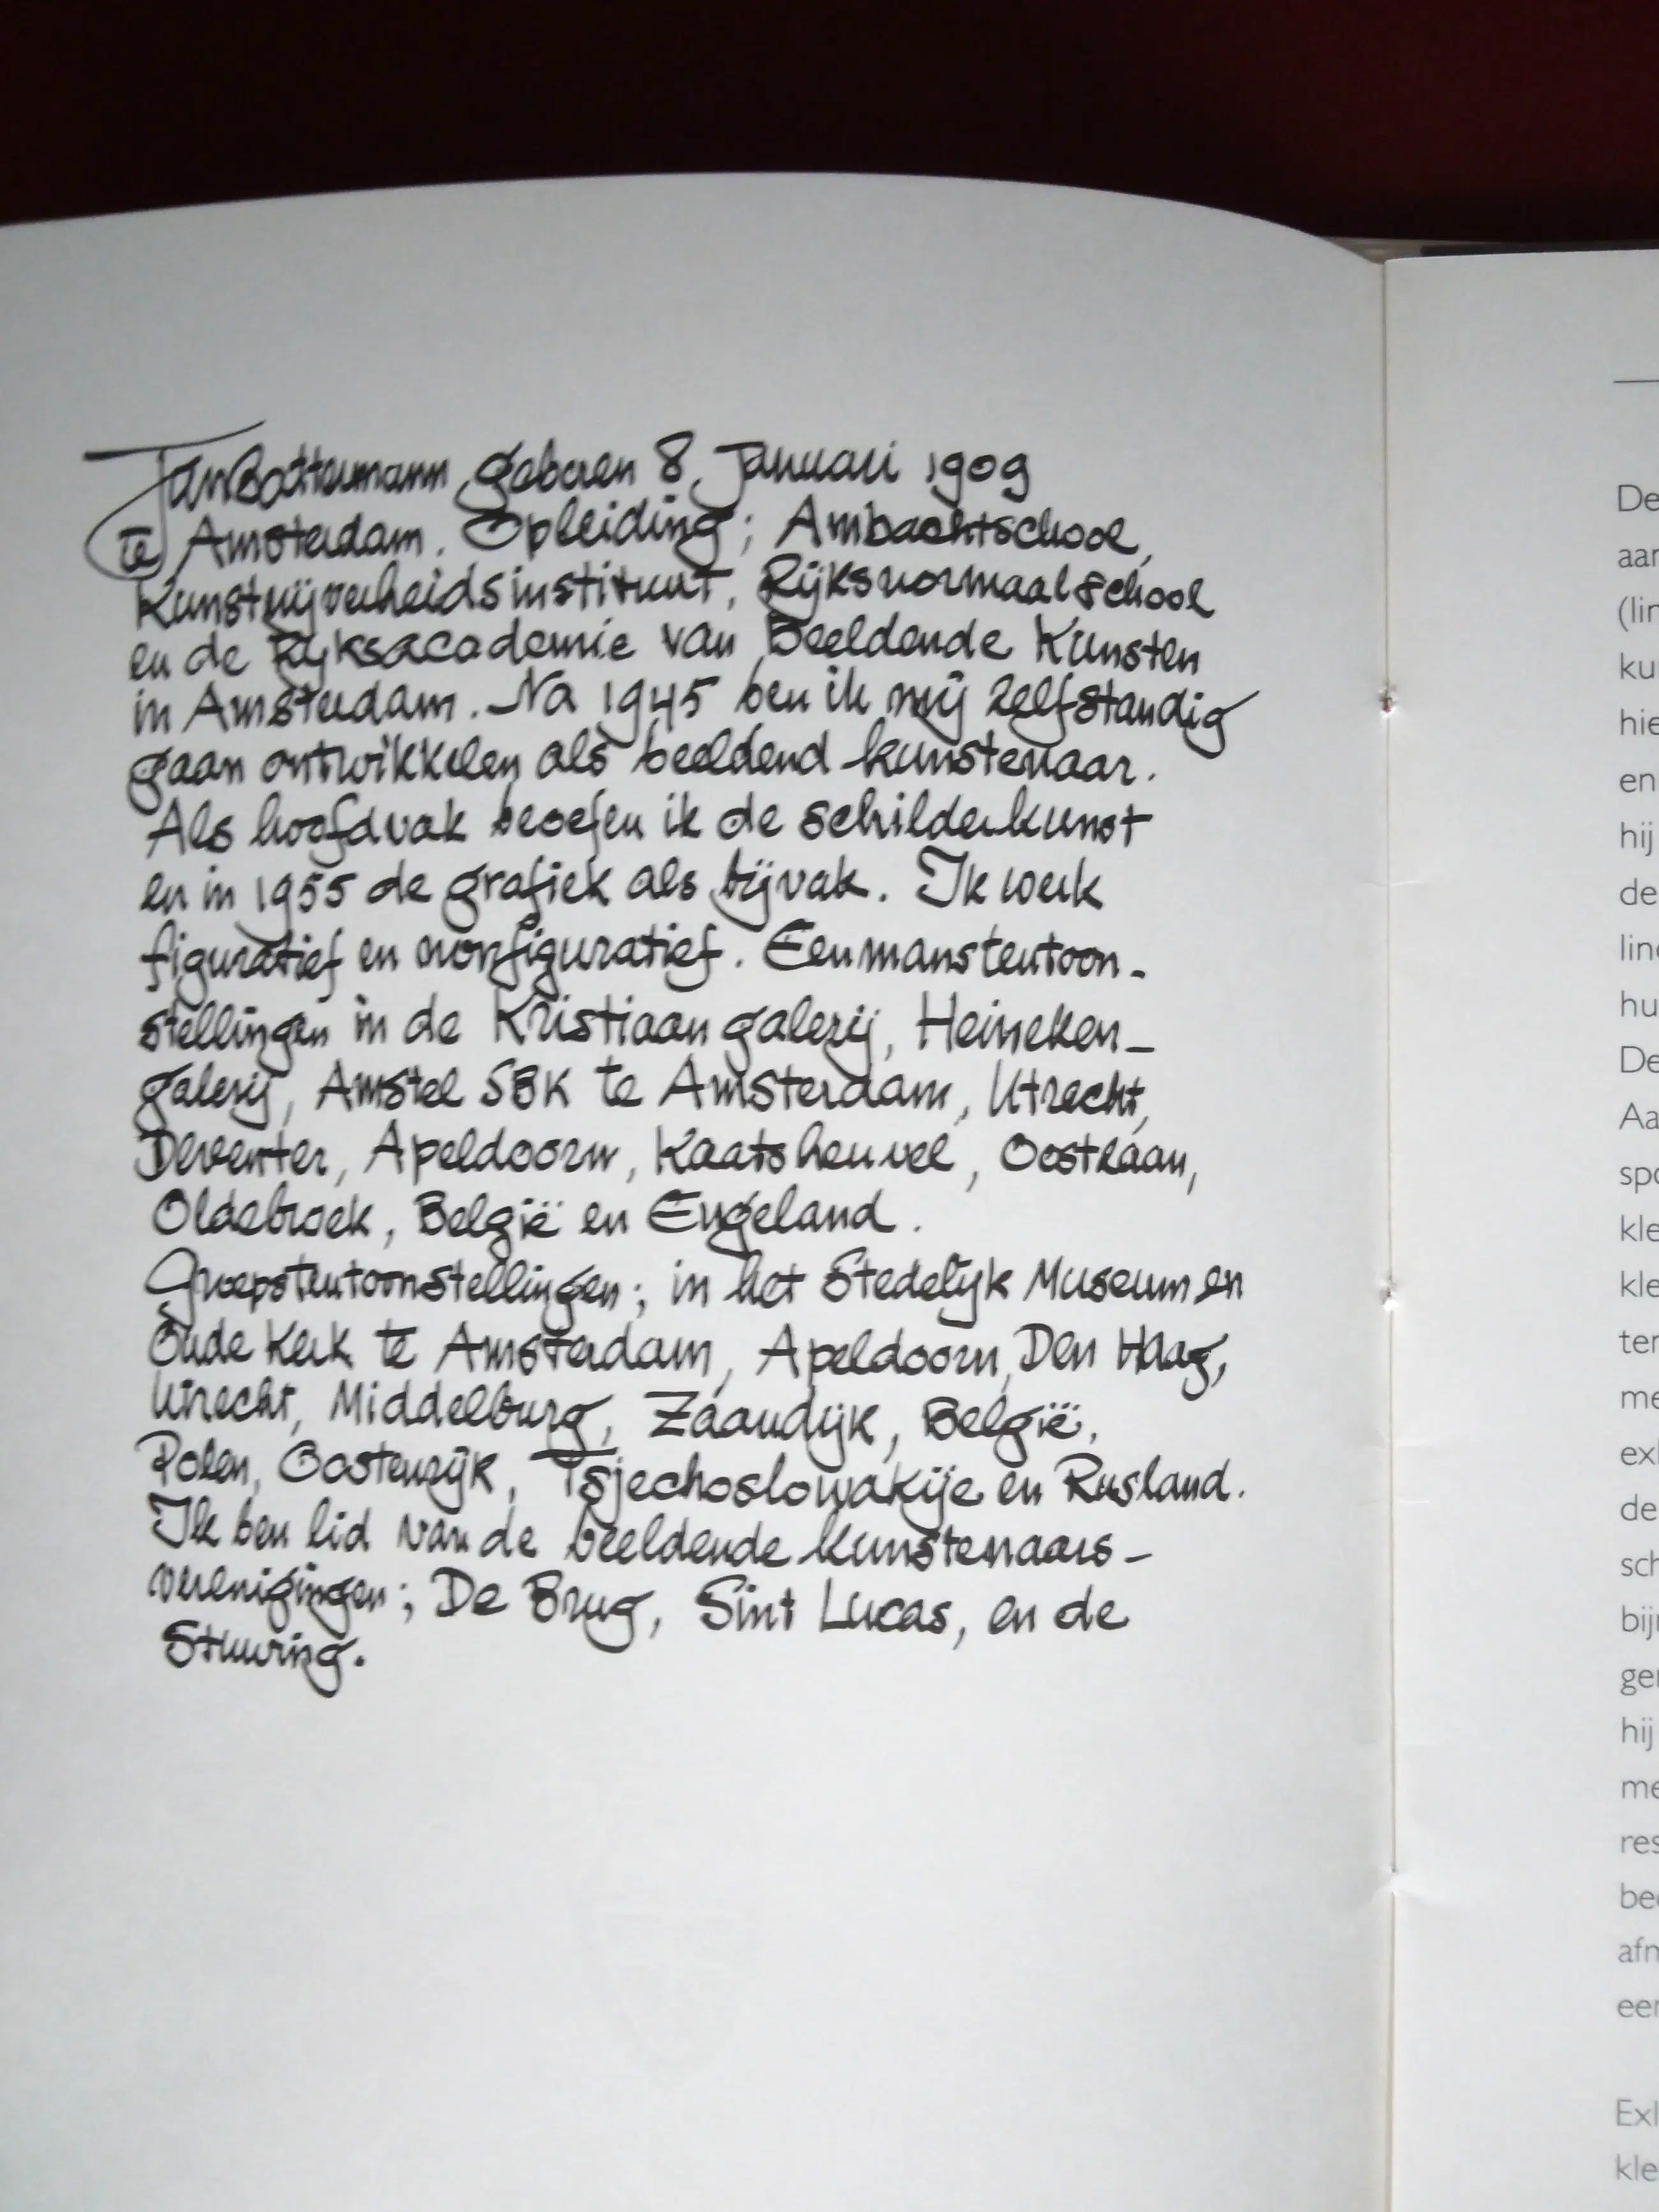 Jan Battermann, geboren 8 Januari 1909
te Amsterdam. Opleiding; Ambachtschool,
Kunstnijverheidsinstituut, Rijksnormaalschool
en de Rijksacademie van Beeldende Kunsten
in Amsterdam. Na 1945 ben ik mij zelfstandig
gaan ontwikkelen als beeldend kunstenaar.
Als hoofdvak beoefen ik de schilderkunst
en in 1955 de grafiek als bijvak. Ik werk
figuratief en nonfiguratief. Eenmanstentoon-
stellingen in de Kristiaan galerij, Heineken-
galerij, Amstel SBK te Amsterdam, Utrecht,
Deventer, Apeldoorn, Kaatsheuvel, Oostzaan,
Oldebroek, België en Engeland.
Groepstentoonstellingen; in het Stedelijk Museum en
Oude Kerk te Amsterdam, Apeldoorn, Den Haag,
Utrecht, Middelburg, Zaandijk, België,
Polen, Oostenrijk, Tsjechoslowakije en Rusland.
Ik ben lid van de beeldende kunstenaars-
verenigingen; De Brug, Sint Lucas, en de
Stuwing.
De
aan
hie
en
hij
de
De
Aa
kle
kle
de
hij
Exl
kle